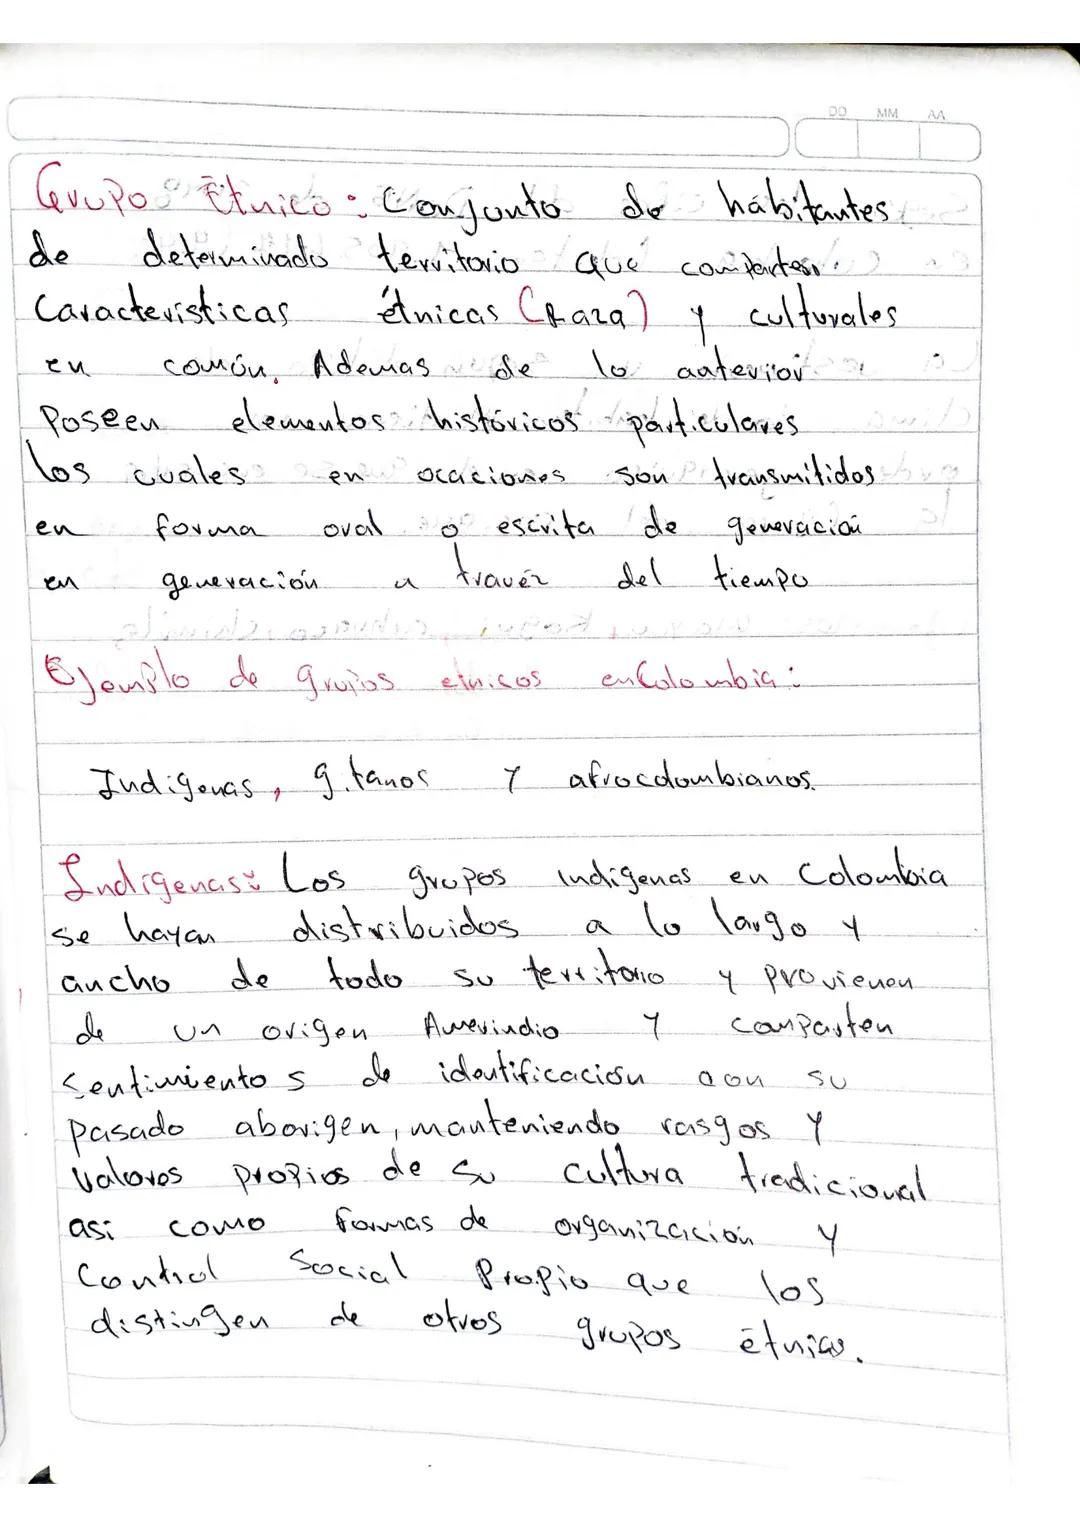 DD MM AA
Grupo Étnico: Conjunto de habitantes
de determinado territorio que comparten
Características étnicas (Raza) y culturales
en común. Ademas de lo anterior
Poseen elementos históricos particulares
los cuales en ocaciones son transmitidos
en forma oral o escrita de generación
en generación a travéz del tiempo
Ejemplo de grupos etnicos en Colombia:
Indigenas, gitanos y afrocolombianos.
Indígenas: Los grupos indígenas en Colombia
se hayan distribuidos a lo largo y
ancho de todo su territorio y provienen
de un origen Amerindio y comparten
Sentimientos de identificación con su
pasado aborigen, manteniendo rasgos y
valores propios de su cultura tradicional
asi como formas de organización y
Control Social Propio que los
distingen de otros grupos étnicos.